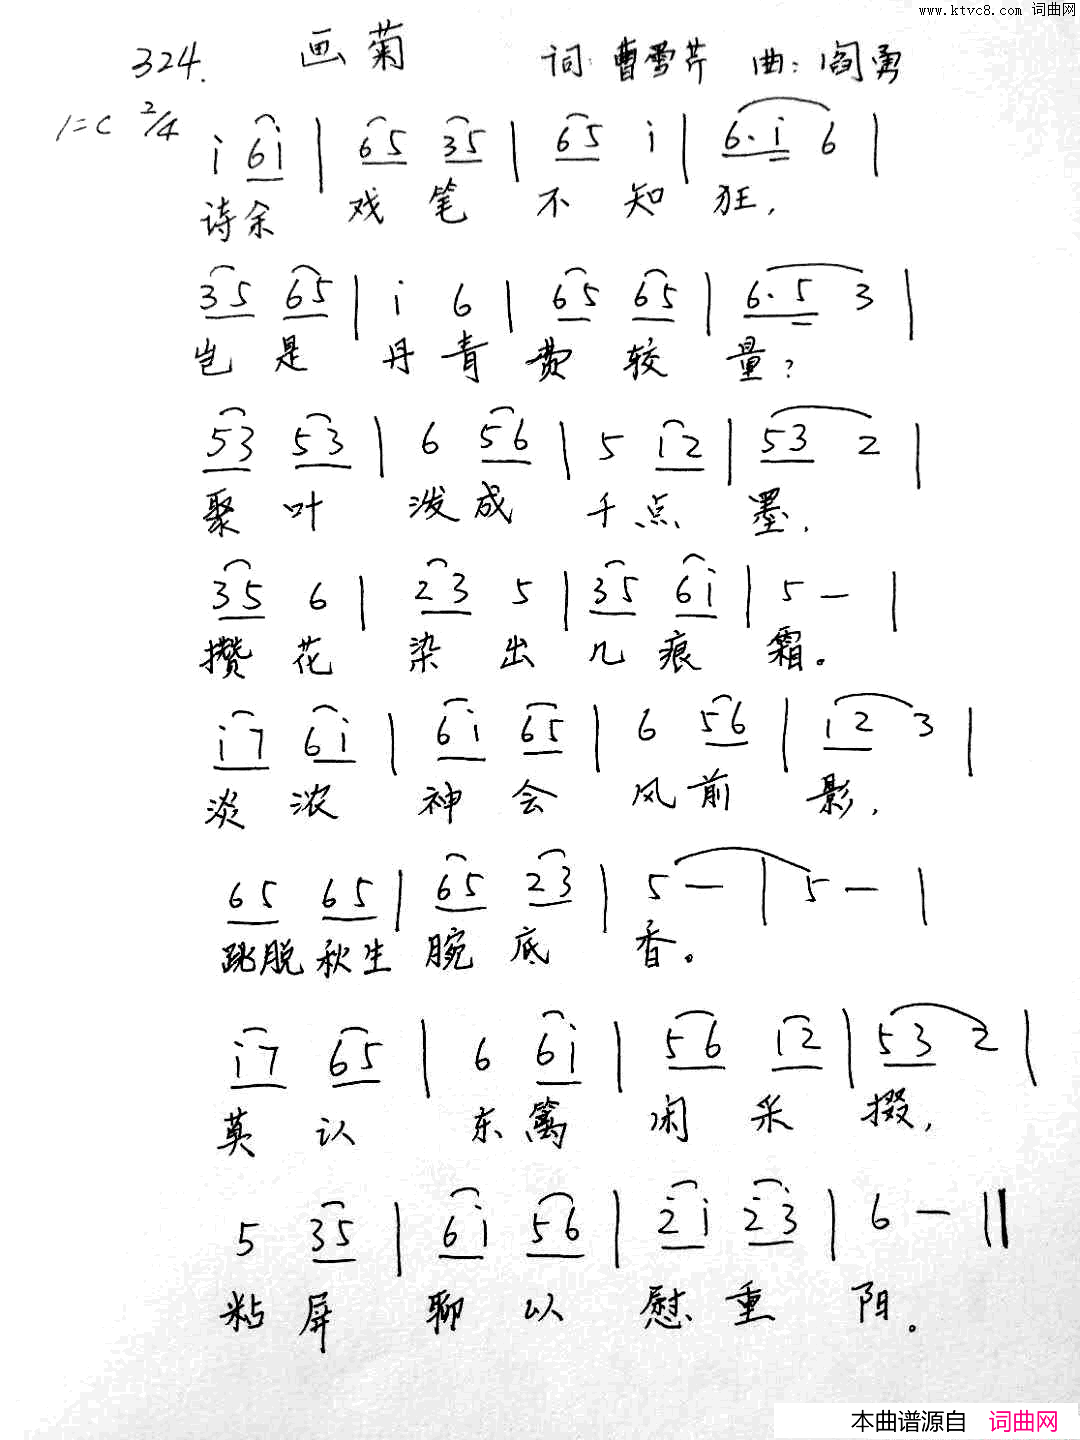 www.ktvc8.com 词曲网
324. 画菊 词:曹雪芹 曲:阎勇
1=C 2/4
i 6i | 65 35 | 65 i | 6·i 6 |
诗余 戏笔 不知狂,
35 65 | i 6 | 65 65 | 6·5 3 |
岂是 丹青 费较量?
53 53 | 6 56 | 5 i2 | 53 2 |
聚叶 泼成 千点墨,
35 6 | 23 5 | 35 6i | 5 — |
攒花 染出 几痕霜。
i7 6i | 6i 65 | 6 56 | i2 3 |
淡浓 神会 风前影,
65 65 | 65 23 | 5 — | 5 — |
跳脱秋生 腕底 香。
i7 65 | 6 6i | 56 i2 | 53 2 |
莫认 东篱 闲采掇,
5 35 | 6i 56 | 2i 23 | 6 — ‖
粘屏 聊以 慰重阳。
本曲谱源自 词曲网